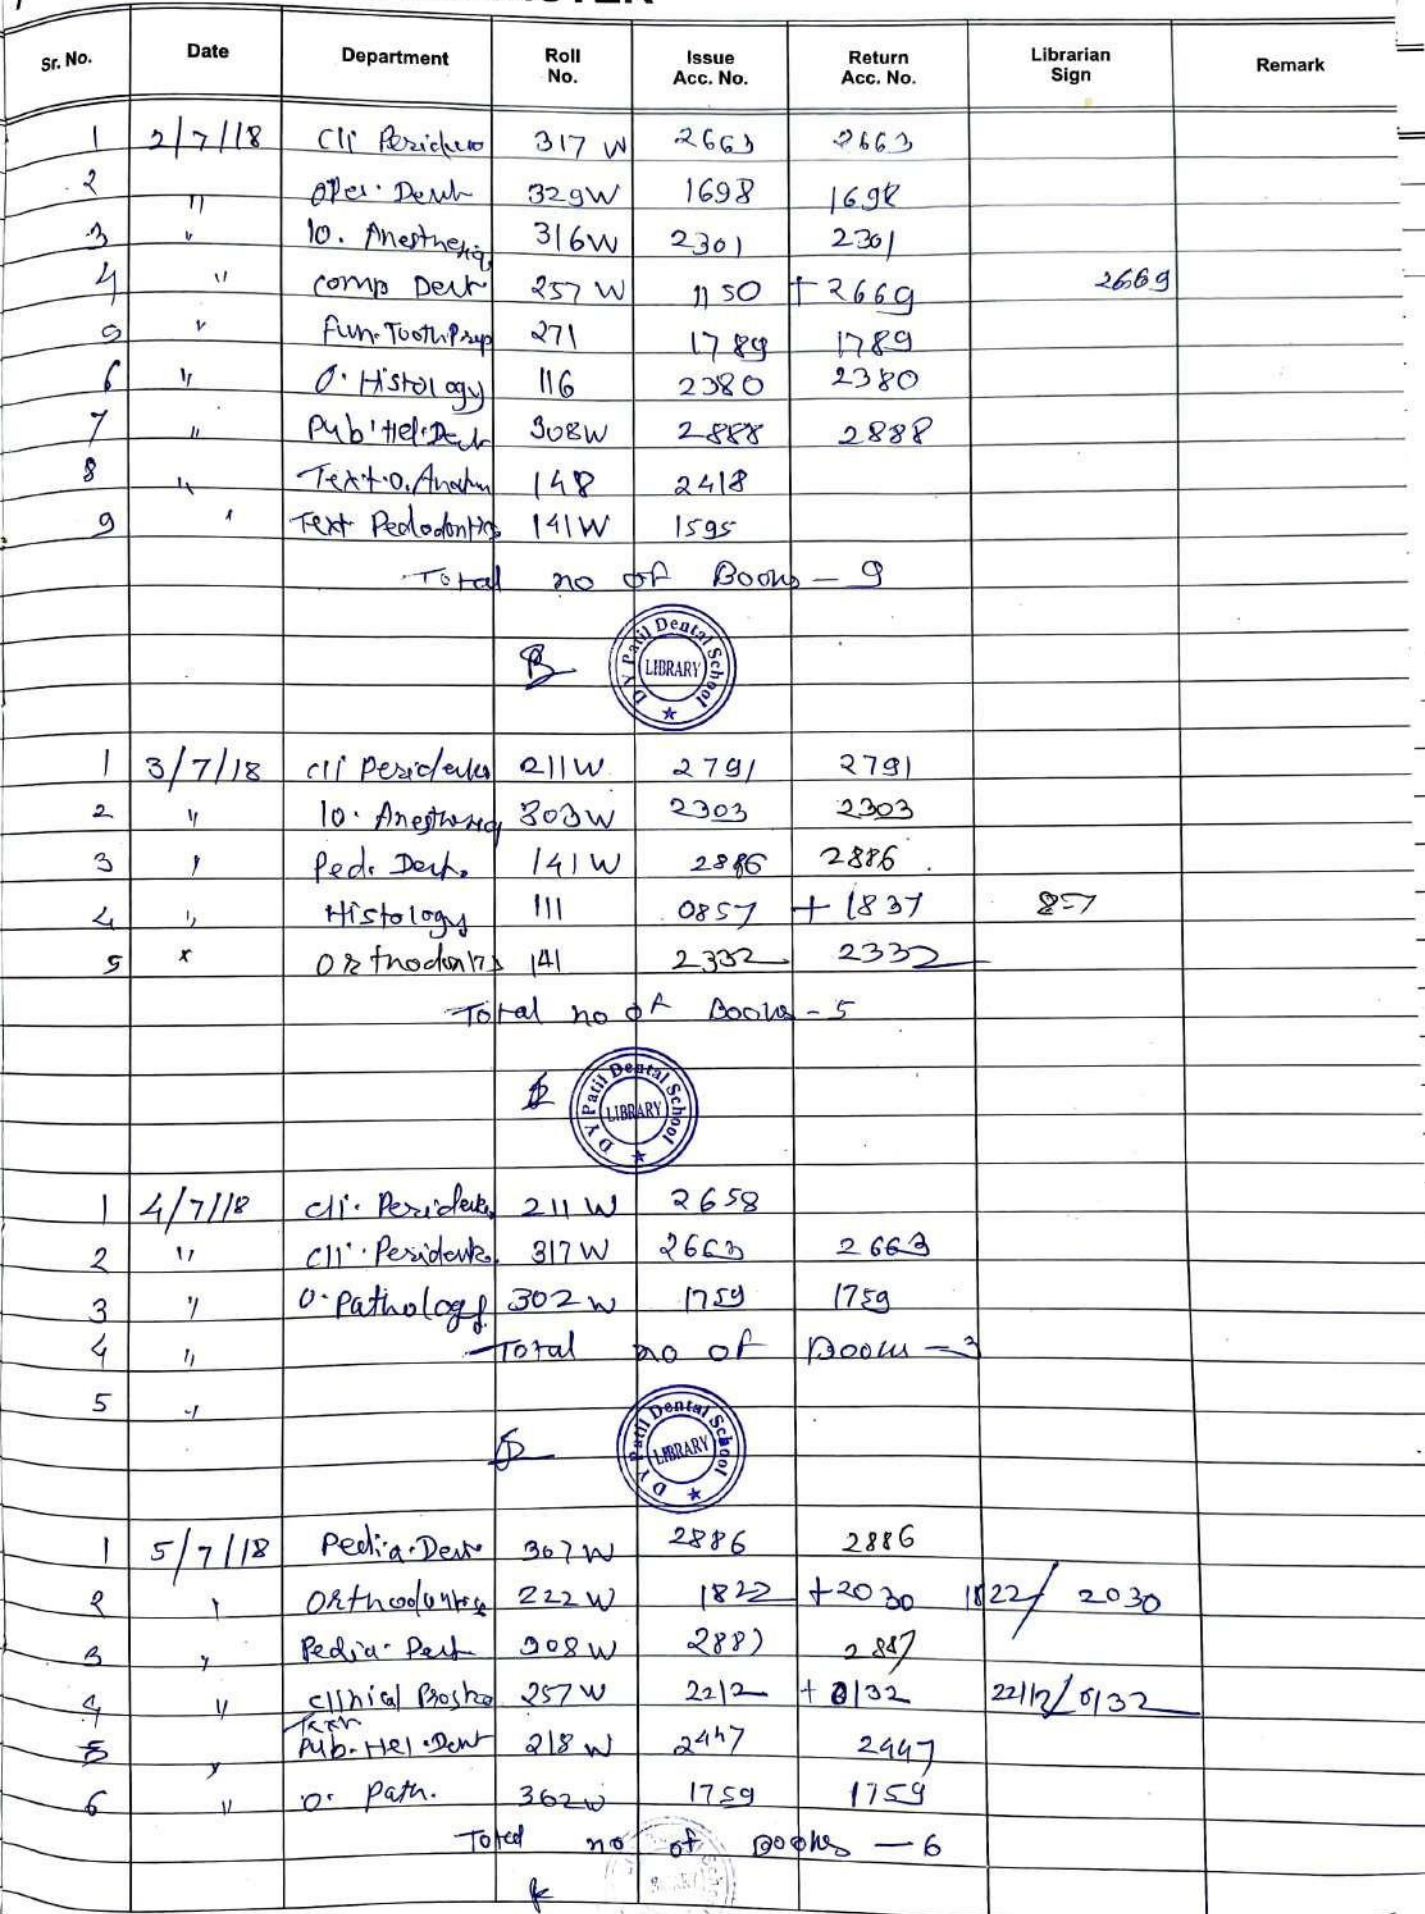 Sr. No. Date Department Roll No. Issue Acc. No. Return Acc. No. Librarian Sign Remark
1 2/7/18 Cli 317 W 2663 2663
2 " Oper. Dent 329W 1698 1698
3 " lo. Anesthesia 316W 2301 2301
4 " comp Dent 257 W 1150 + 2669 2669
5 " Fun. Tooth Prep 271 1789 1789
6 " O. Histology 116 2380 2380
7 " Pub. Hel. Dent 308W 2888 2888
8 " Text. O. Anatm 148 2418
9 " Text Pedodontics 141W 1595
Total no of Books - 9
D Y Patil Dental School
LIBRARY
1 3/7/18 cli 211W 2791 2791
2 " lo. 303W 2303 2303
3 " Ped. Dent. 141W 2886 2886
4 " Histology 111 0857 + 1837
5 " Orthodontics 141 2332 2332
Total no of Books - 5
D Y Patil Dental School
LIBRARY
1 4/7/18 cli. 211 W 2658
2 " Cli. 317W 2663 2663
3 " O. Pathology 302 W 1759 1759
4 " Total no of Books - 3
5 "
D Y Patil Dental School
LIBRARY
1 5/7/18 Pedia. Dent 307 W 2886 2886
2 " Orthodontics 222 W 1822 +2030 1822/ 2030
3 " Pedia. Dent 308 W 2887 2887
4 " Clinical Prostho 257 W 2212 + 0132 2212/0132
5 " Pub. Hel. Dent 218 W 2447 2447
6 " O. Path. 362W 1759 1759
Total no of Books - 6